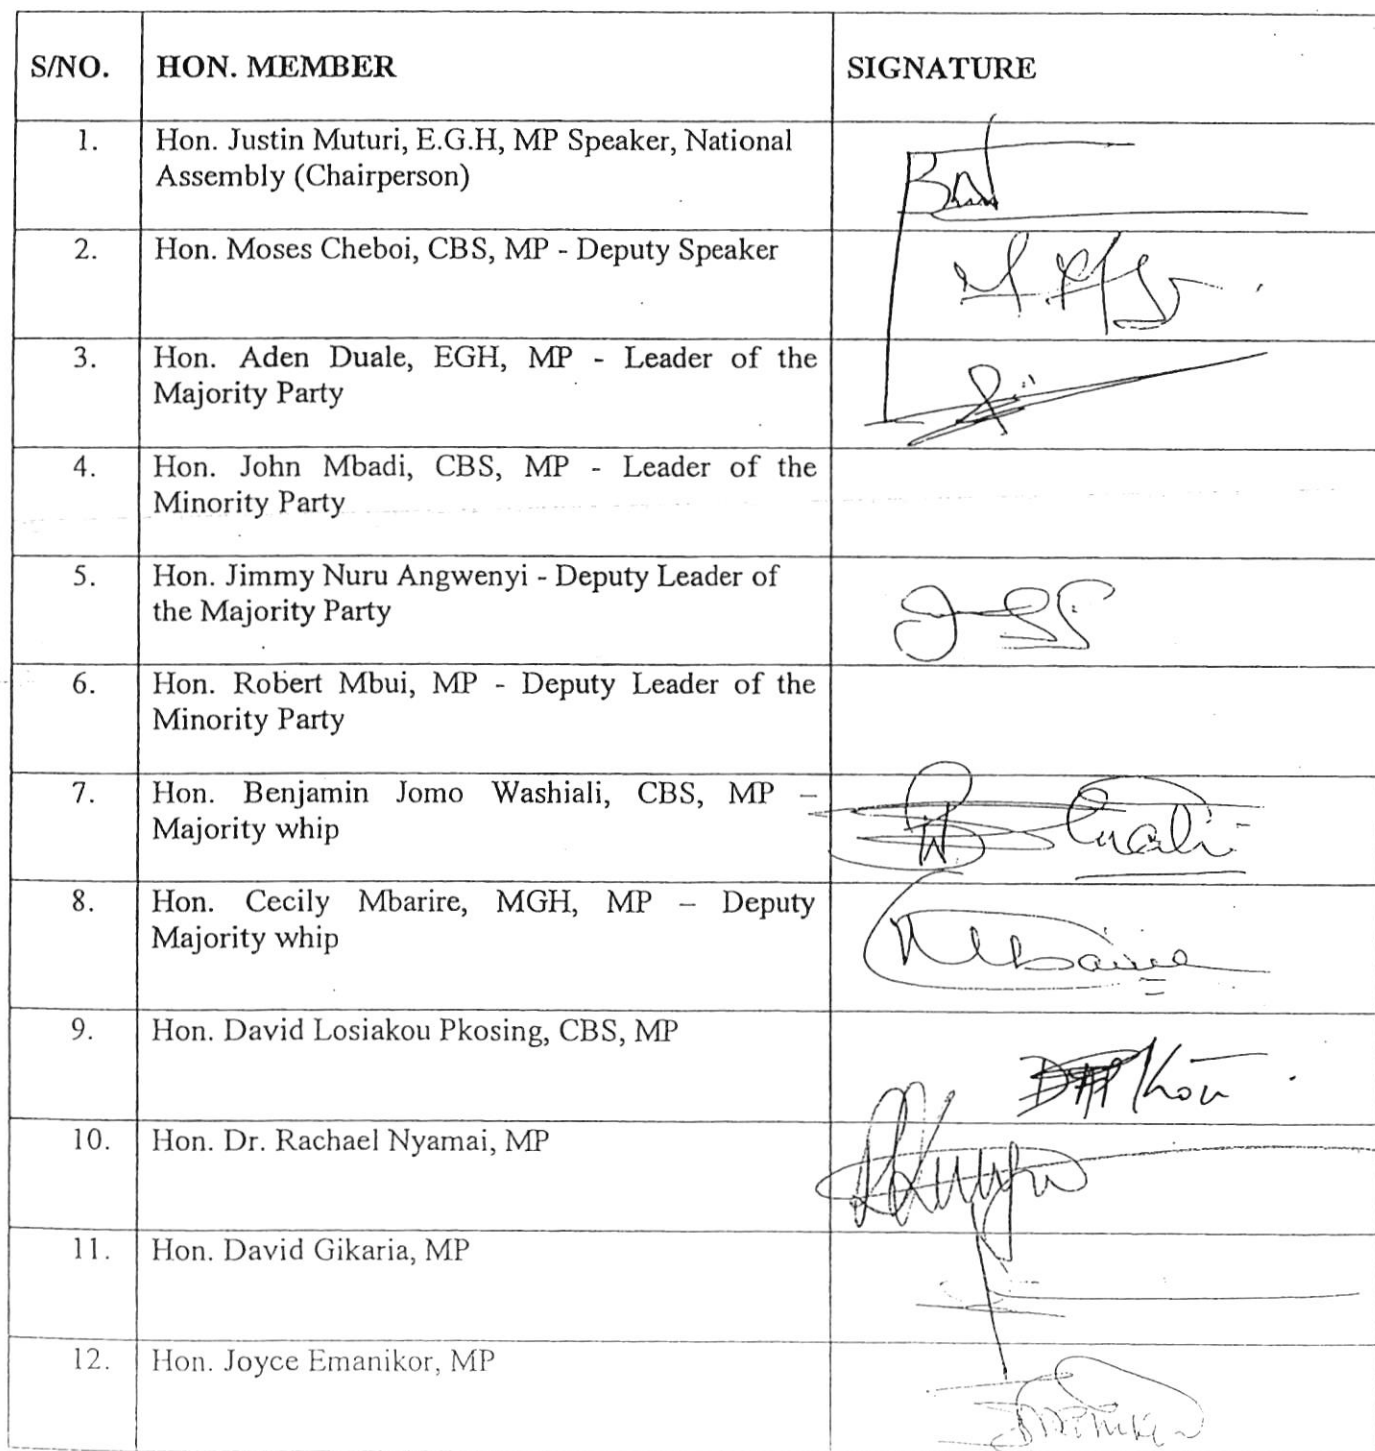 S/NO. HON. MEMBER SIGNATURE
1. Hon. Justin Muturi, E.G.H, MP Speaker, National
Assembly (Chairperson)
2. Hon. Moses Cheboi, CBS, MP - Deputy Speaker
3. Hon. Aden Duale, EGH, MP - Leader of the
Majority Party
4. Hon. John Mbadi, CBS, MP - Leader of the
Minority Party
5. Hon. Jimmy Nuru Angwenyi - Deputy Leader of
the Majority Party
6. Hon. Robert Mbui, MP - Deputy Leader of the
Minority Party
7. Hon. Benjamin Jomo Washiali, CBS, MP –
Majority whip
8. Hon. Cecily Mbarire, MGH, MP – Deputy
Majority whip
9. Hon. David Losiakou Pkosing, CBS, MP
10. Hon. Dr. Rachael Nyamai, MP
11. Hon. David Gikaria, MP
12. Hon. Joyce Emanikor, MP